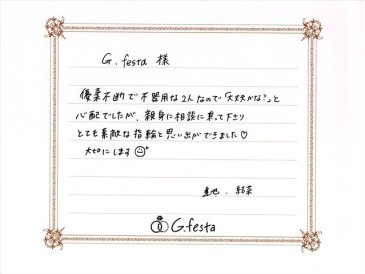 G.festa 様
優柔不断で不器用な2人なので「大丈夫かな?」と
心配でしたが、親身に相談に乗って下さり
とても素敵な指輪と思い出ができました♡
大切にします
結菜
G.festa